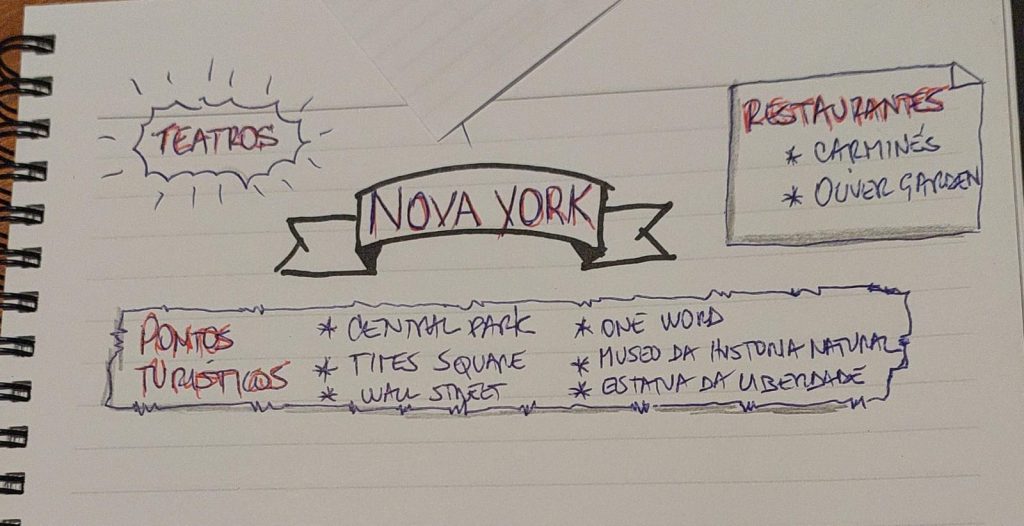 TEATROS
NOVA YORK
RESTAURANTES
* CARMINÉS
* OLIVER GARDEN
PONTOS
TURISTICOS
* CENTRAL PARK
* TIMES SQUARE
* WALL STREET
* ONE WORD
* MUSEO DA HISTORIA NATURAL
* ESTATUA DA LIBERDADE